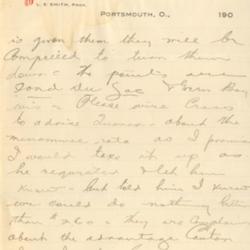 L. E. SMITH, PRES.
PORTSMOUTH, O., 190
is given them they will be
Compelled to turn them
down - The points are
Fond du Lac & Green Bay
Wis - Please wire Cross
to advise about the
menominee rate as I promised
I would take it up as
he requested & let him
know - but told him I knew
you could do nothing better
than they are
about the advantage Canton